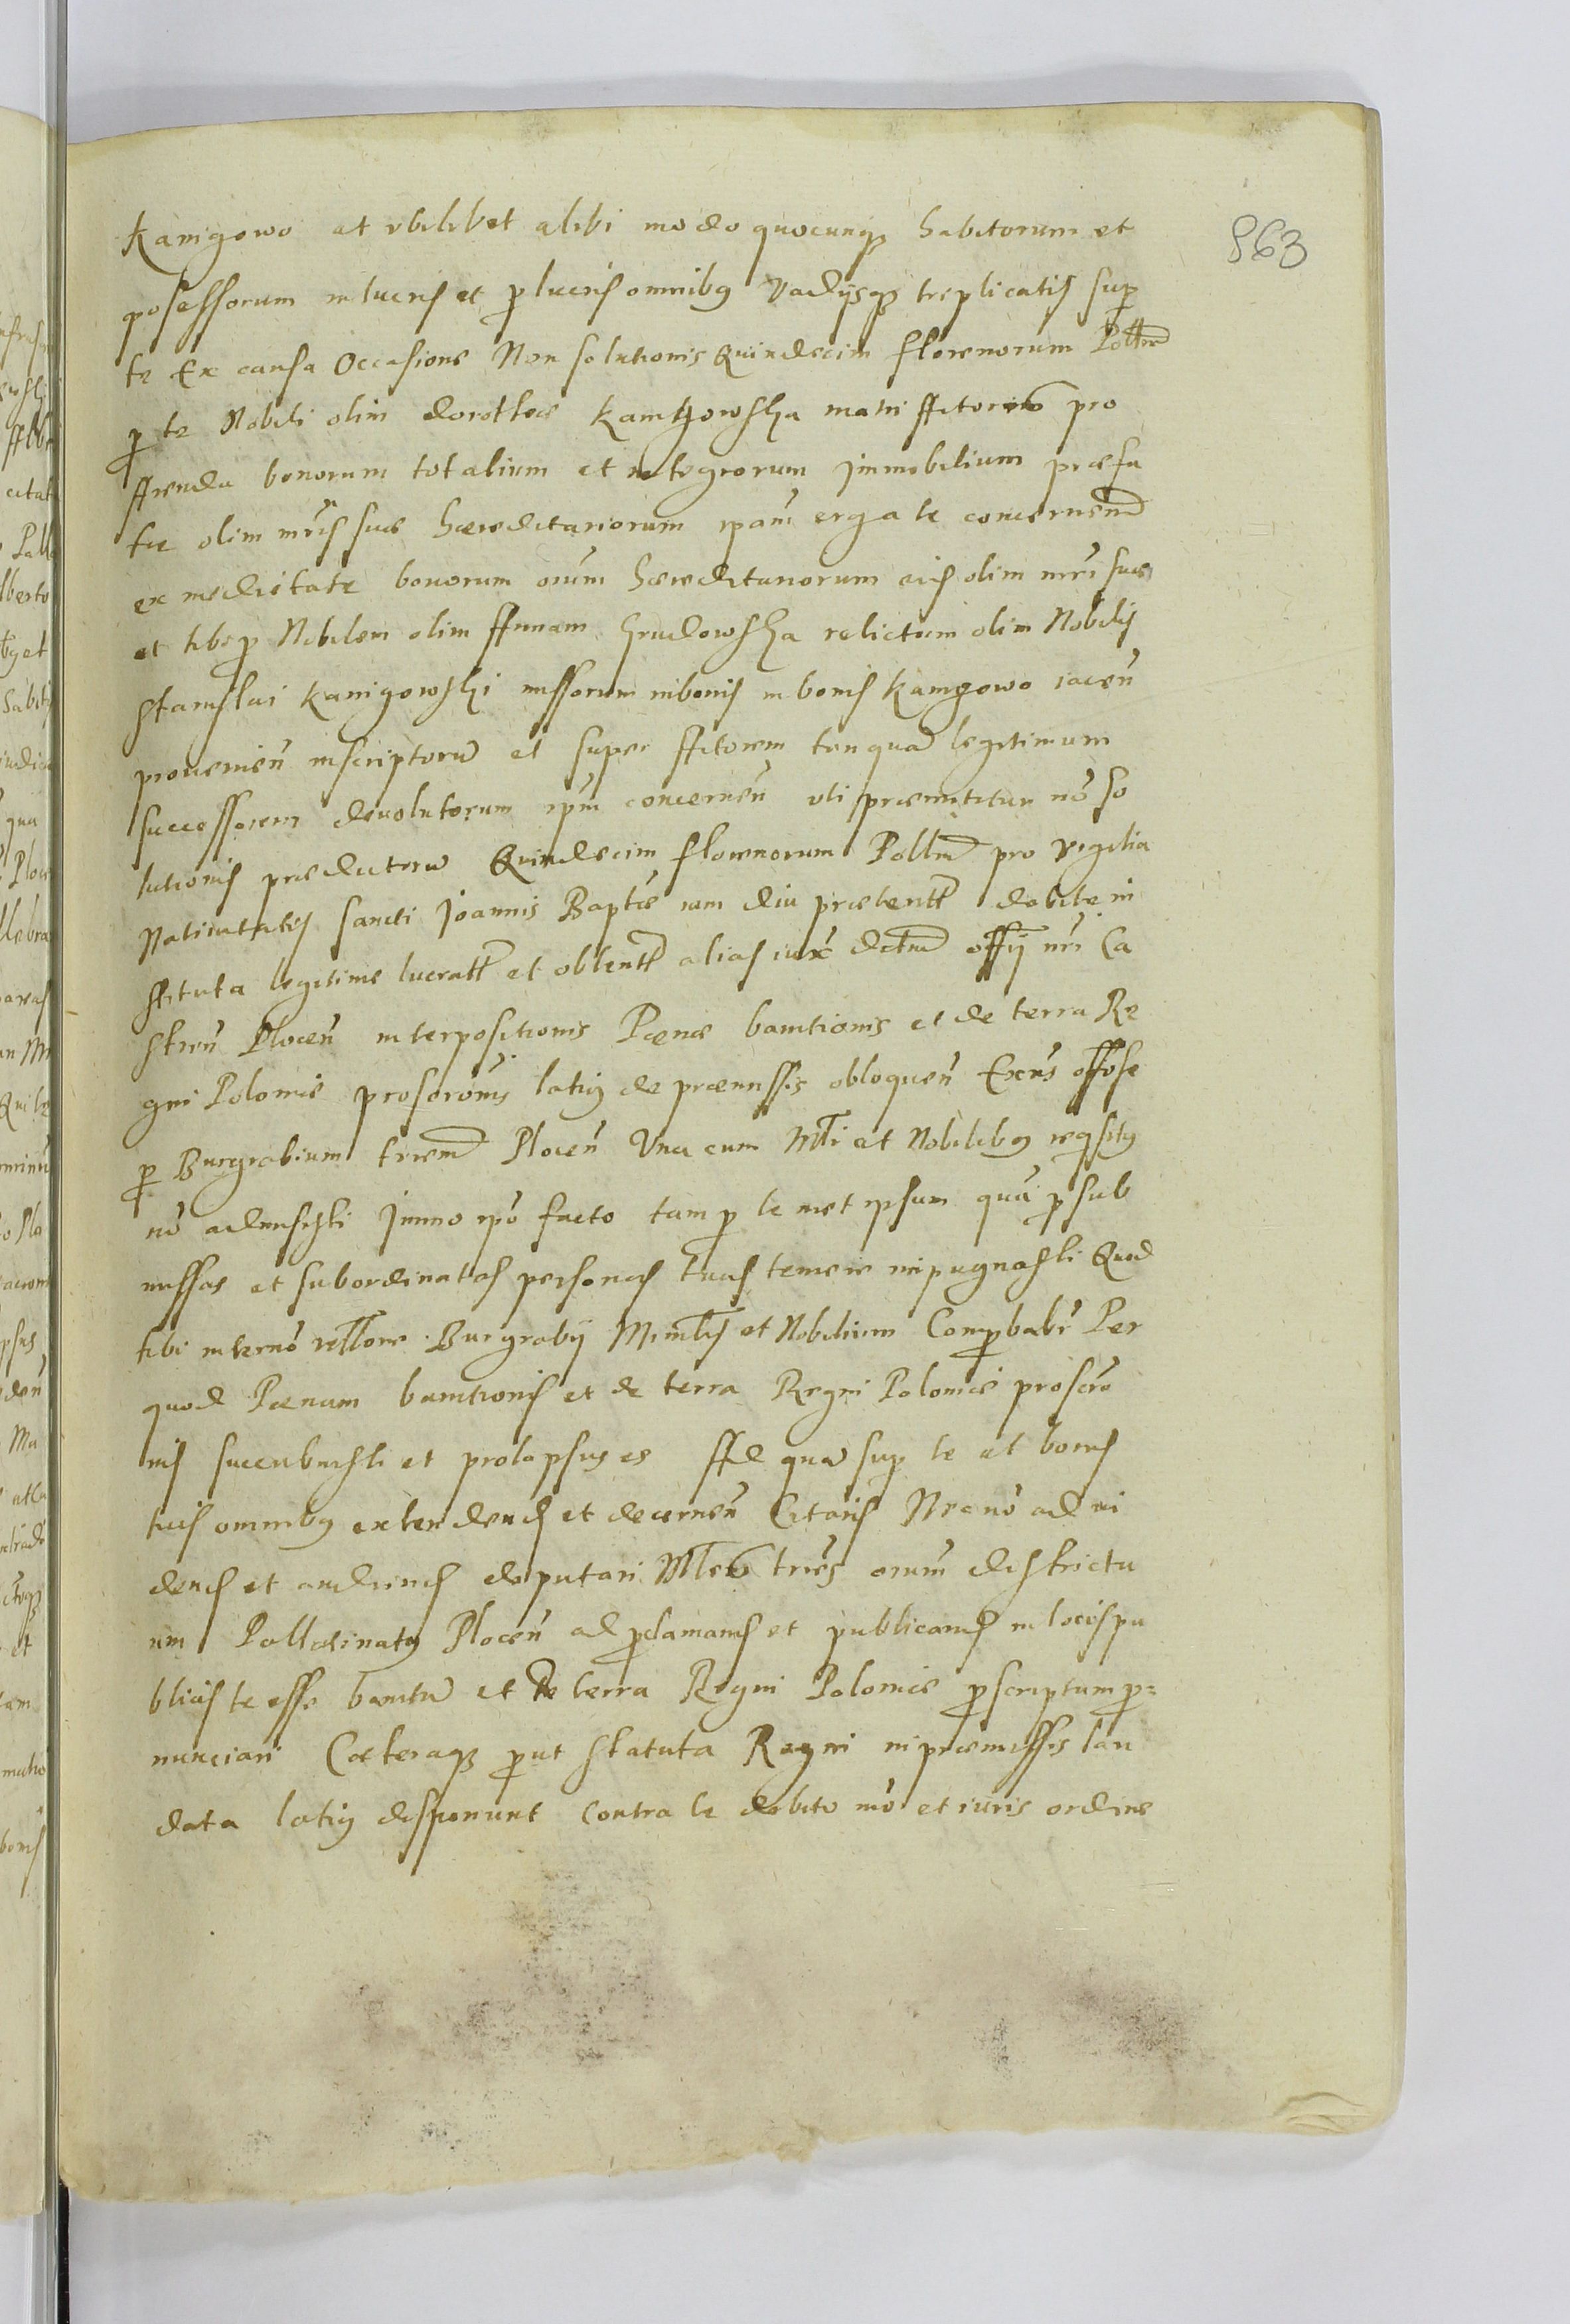 863
Kanigowo et vbilibet alibi modo quocunqȝ habitorum et
possessorum in lucris et p lucris omnibȝ Vadijsqȝ triplicatis sup
te Ex causa Occasione Non solutionis Quindecim florenorum Pollm̃
p te Nobili olim dorotheæ Kanigowska matri Actoreo pro
Arenda bonorum totalium et integrorum Immobilium præfa
tæ olim mr̃is suæ hæreditariorum ipam̃ erga te concernem̃
ex medietate bonorum oium̃ hæreditariorum eius olim mr̃i suæ
et tibi p Nobilem olim Annam Grudowska relictam olim Nobilis
Stanislai Kanigowski in bonis Kanigowo iaceñ
proueniẽn inscriptorũ et super Actorem tanquã legitimum
successorem deuolutorum ipm̃ concerneñ uti præmittitur nõ so
lutionis prædictorũ Quindecim florenorum Pollm̃ pro Vigilia
Natiuitatis Sancti Joannis Baptæ iam diu præterit debite in
stituta legitime lucrat et obtent alias iuxt dictm̃ offij nr̃i Ca
streñ Ploceñ interpositionis Pœnæ bannitionis et de terra Re
gni Poloniæ proscronis latiȝ de præmissis obloqueñ Execũs offose
p Burgrabium Ploceñ Vna cum Mtli et Nobilibȝ reqsitȝ
nõ admisisti Immo ipõ facto tam p te met ipsum quã p sub
missas et subordinatas personas tuas temere impugnasti Quod
tibi internõ rellone Burgrabij Minrlis et Nobilium Comprbabr̃ Per
quod Pœnam bannitionis et de terra Regni Poloniæ proscrõ
nis succubuisti et prolapsus es Ad quã sup te et bonis
tuis omnibȝ extendend et decerneñ Citaris Nec nõ ad vi
dend et audiend deputari Mleo tr̃es oium̃ districtu
um Pallatinatȝ Ploceñ ad pclamand et publicand in locis pu
blicis te esse bannitũ et de terra Regni Poloniæ pscriptum p=
nunciari Cæteraqȝ put Statuta Regni in præmissis lau
data latiȝ disponunt Contra te debito mõ et iuris ordine